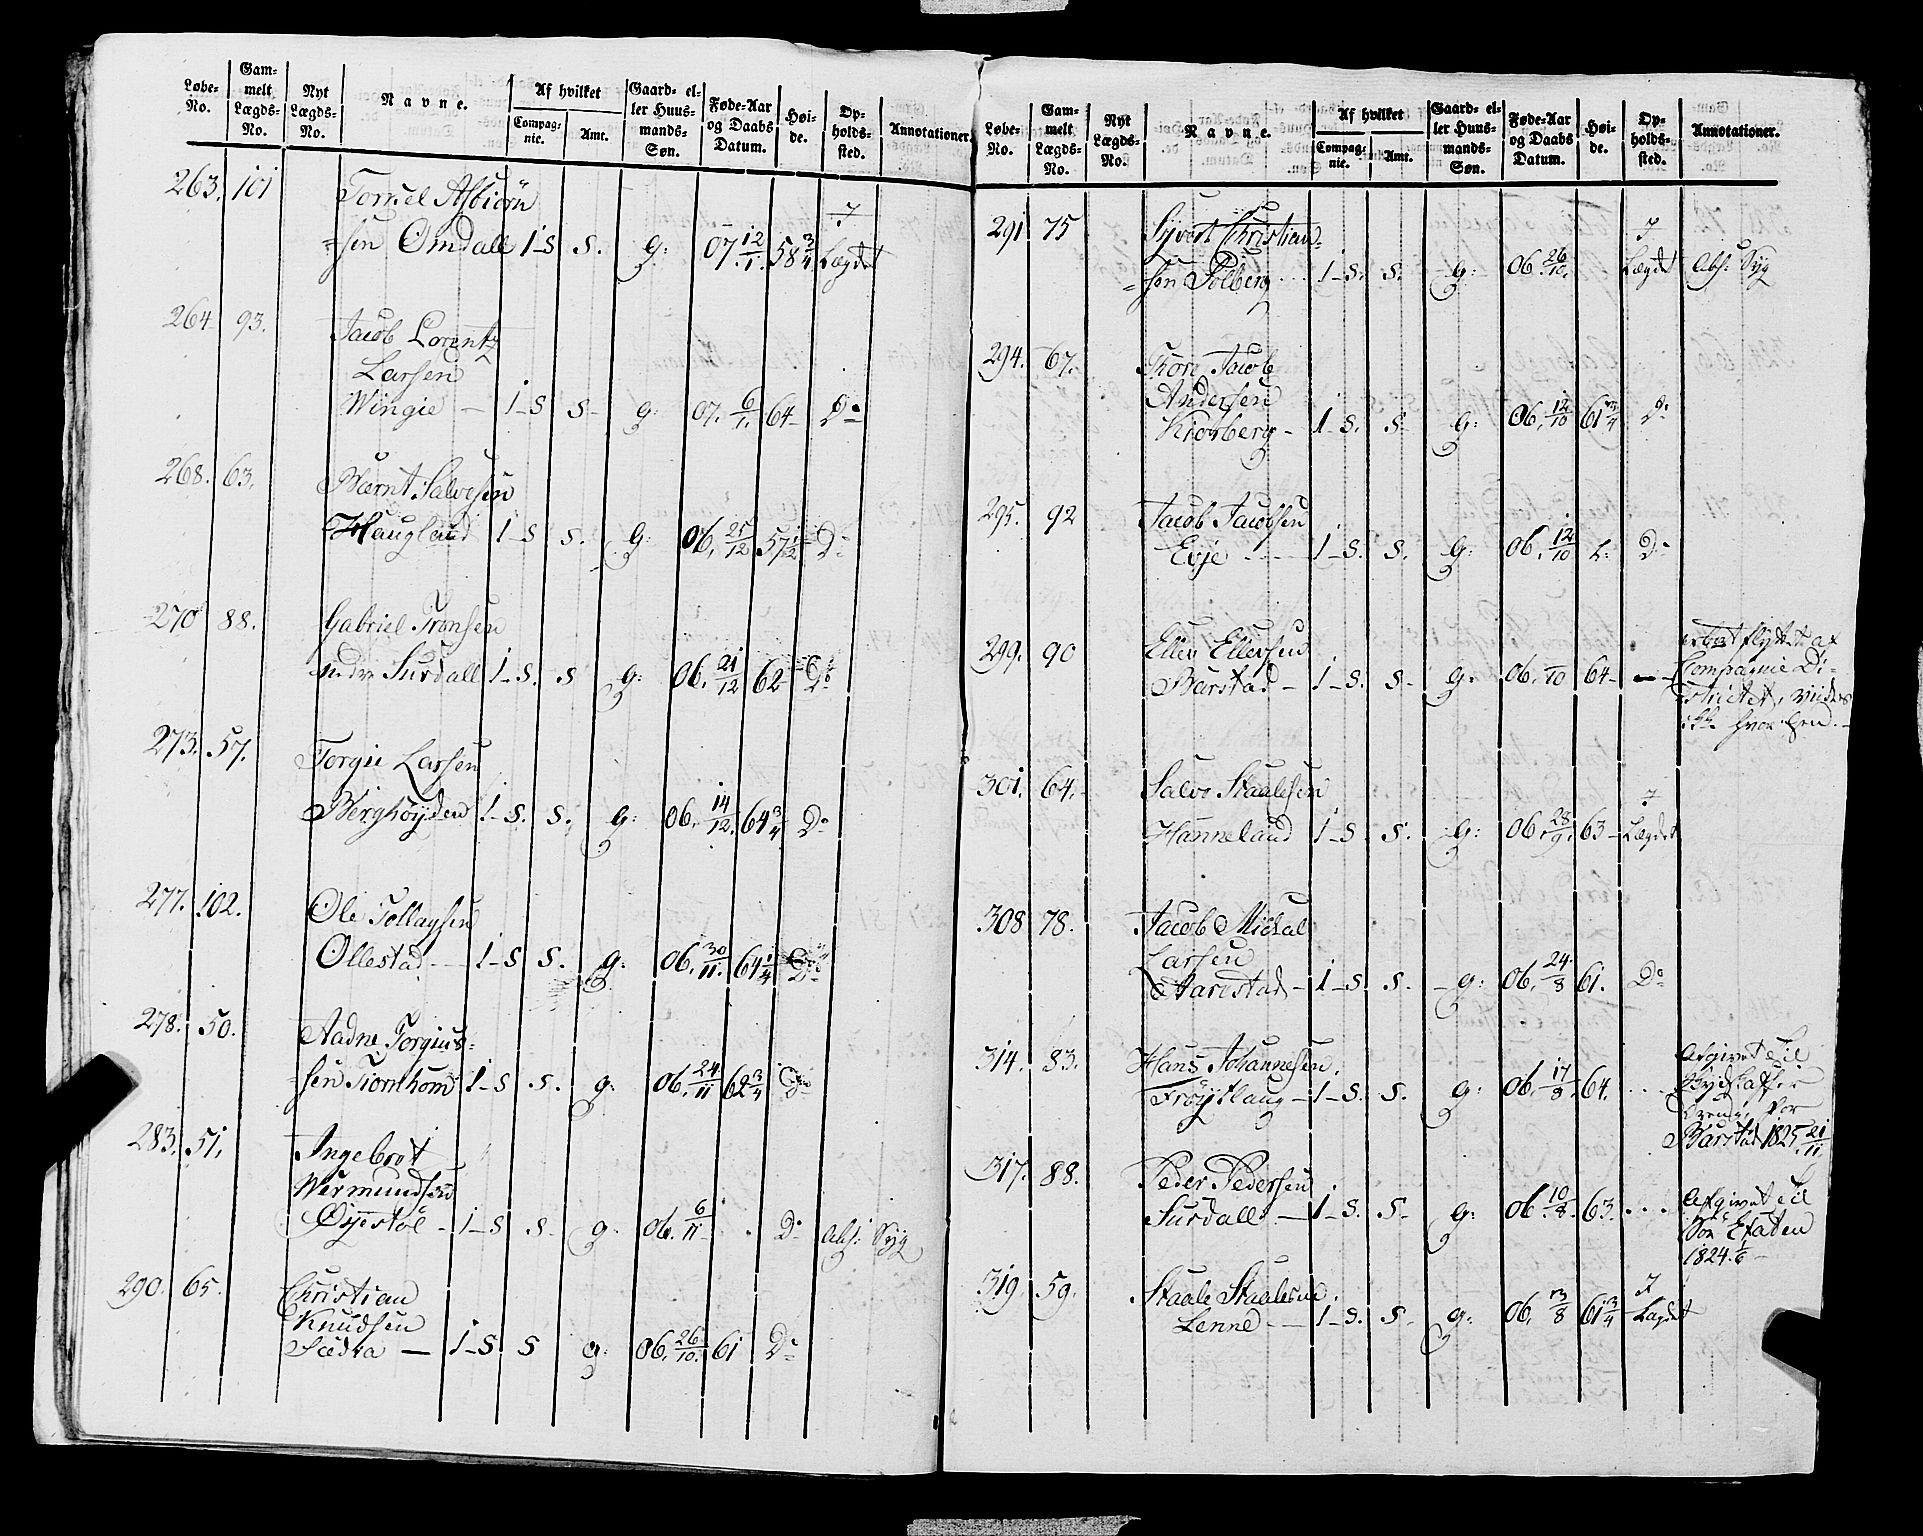 Løbe-No. Gammelt Lægds-No. Nyt Lægds-No. Navne. Af hvilket Compagnie. Amt. Gaard- eller Huusmands-Søn. Føde-Aar og Daabs Datum. Høide. Opholdssted. Annotationer.
263. 101 Tormel Asbiörn
=sen Omdall 1-S S. g: 07. 12/1. 58 3/4 I Lægdet
264 93. Jacob Lorentz
Larsen
Wingie — 1-S S- g: 07. 6/1. 64- Do
268. 63. Bærnt Salvesen
Haugland 1-S S. g: 06. 25/12 57 1/2 Do
270 88. Gabriel Tronsen
n.dre Surdall 1-S. S g: 06. 21/12 62 Do
273. 57. Torgie Larsen
Berghöyden 1-S. S. g: 06. 14/12. 64 3/4 Do
277. 102. Ole Tollagsen
Ollestad — 1-S S. g: 06. 30/11. 64 1/4 Do
278. 50. Aadne Torgius=
=sen Tiomhom 1-S S. g: 06. 24/11 62 3/4 Do
283. 51. Ingebrot
Wermundsen
Öyestöl - 1-S S- g: 06. 6/11 Do Abs: Syg
290. 65. Christian
Knudsen
Sædra — 1-S. S g: 06. 26/10. 61 Do
Løbe-No. Gammelt Lægds-No. Nyt Lægds-No. Navne. Af hvilket Compagnie. Amt. Gaard- eller Huusmands-Søn. Føde-Aar og Daabs Datum. Høide. Opholdssted. Annotationer.
291 75 Syvert Christian=
=sen Solberg 1-S. S. g: 06 26/10. I Lægdet Abs: Syg
294. 67. Thore Jacob
Andersen
Kiorberg - 1-S. S- g: 06. 12/10 61 3/4 Do
295. 92 Jacob Jacobsen
Evje 1-S. S. g: 06. 12/10 L: Do
299. 90 Ellen Ellefsen
Barstad - 1-S. S- g: 06. /10 64- — er bortflyttet af
Compagnie Di=
strictet, vides
ikke hvor hen. -
301. 64. Salve Staalesen
Hanneland 1-S S. g: 06. 28/9. 63 - I Lægdet
308 78. Jacob Mickal
Larsen
Aarrestad - 1-S. S. g: 06. 24/8 61. Do
314. 83. Hans Johannesen.
Fröytlaug - 1-S. S. g: 06. 17/8. 64. . . . Afgivet til
Bydsatser
for
Barstad 1825 21/11
317. 88. Peder Pedersen.
Surdall — 1-S. S- g: 06. 10/8. 63. . . . Afgivet til
Söe Etaten
1824. 1/6 -
319. 59. Staale Staalesen.
Lenne — 1-S. S. g: 06. 3/8 61 3/4 I Lægdet